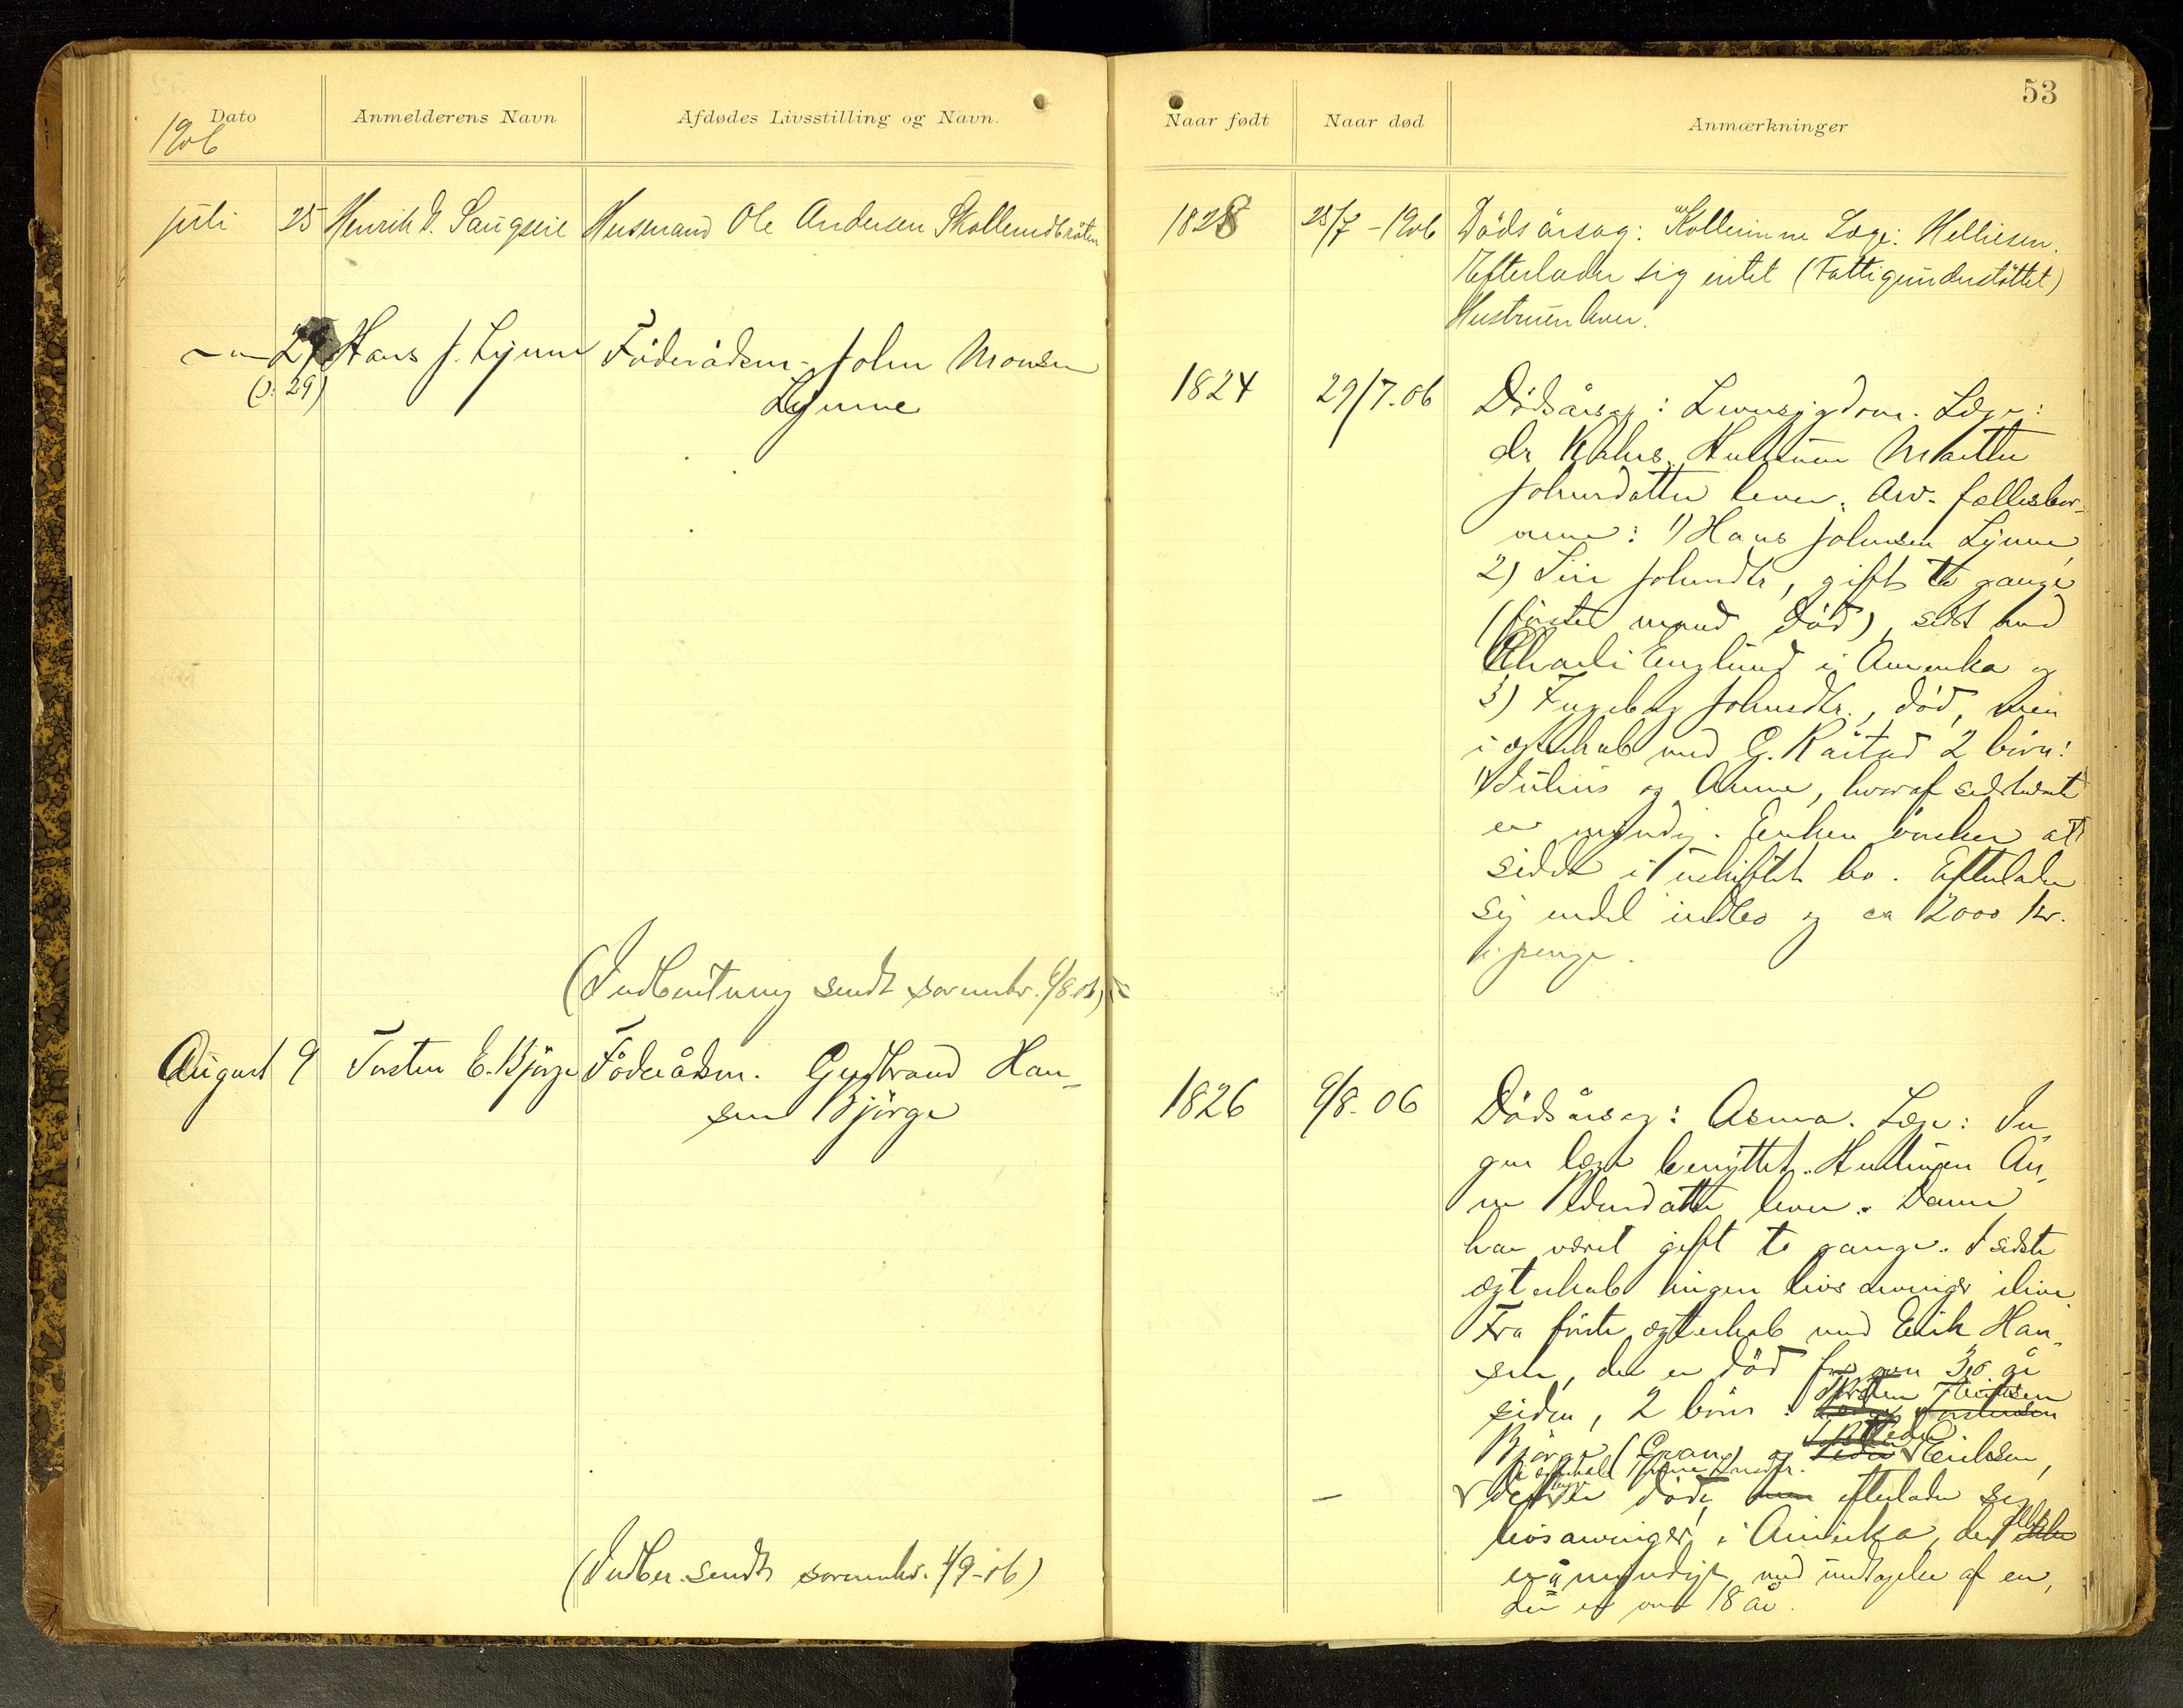 53
Dato Anmelderens Navn Afdødes Livsstilling og Navn. Naar født Naar død Anmærkninger
1906
juli 25 Henrik Husmand Ole Andersen 1828 25/7-1906 Dödsårsag: Læge: Helliesen.
Efterlader sig intet (Fattigunderstöttet)
Hustruen lever.
-"- 29 Hans J. Lynne Föderådsm. John Monsen
(ɔ: 29) Lynne
1824 29/7.06 Dödsårsag: Leversygdom. Læge:
dr Hustruen Marthe
Johnsdatter lever. Arv. fællesbör-
nene: 1) Hans Johnsen Lynne,
2) Siri Johnsdtr, gift to gange
(förste mand död), sidst med
Charli Englund i Amerika og
3) Ingeborg Johnsdtr., död, men
i ægteskab med G. Råstad 2 börn:
Julius og Anne, hvoraf sidstnævnte
er myndig. Enken önsker at
sidde i uskiftet bo. Efterlader
sig endel indbo og ca 2000 kr.
i penge.
(Indberetning sendt sorenskr. 4/8.06)
August 9 Torsten E. Björge Föderådsm. Gudbrand Han-
sen Björge
1826 9/8.06 Dödsårsag: Asma. Læge: In-
gen læge benyttet. Hustruen An-
ne lever. Denne
har været gift to gange. I sidste
ægteskab ingen livsarvinger ilive.
Fra förste ægteskab med Erik Han-
sen, der er död for 30 år
siden, 2 börn: Torsten
Björge (Gran) og Eriksen,
död, efterlader sig
livsarvinger i Amerika, der
er myndige med undtagelse af en,
der er 18 år.
(Indber. sendt sorenskr. 1/9-06)